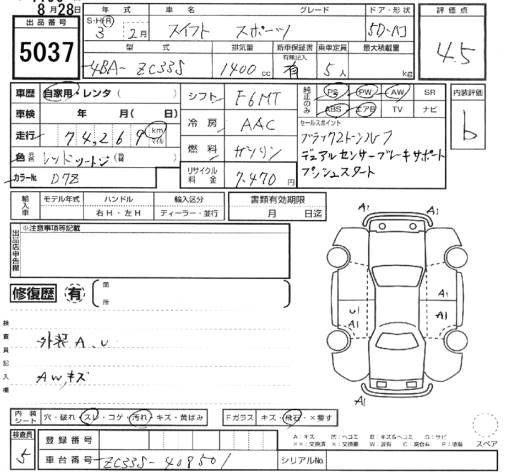 8月28日
出品番号
5037
年式 車名 グレード ドア・形状
S・H・R 3年 2月 スイフト スポーツ 5D-ハコ
型式 排気量 新車保証書 乗車定員 最大積載量
有無記入
4BA-ZC33S 1400cc 有 5人 kg
評価点
4.5
車歴 自家用・レンタ( )
車検 年( )月( )日
走行 74,269 km マイル
色 元色 レッドツートン(替 )
カラーNo. D7Z
シフト F6MT
冷房 AAC
燃料 ガソリン
リサイクル料金 7,470円
純正のみ
PS PW AW SR
ABS エアB TV ナビ
セールスポイント
ブラック2トーンルーフ
デュアルセンサーブレーキサポート
プッシュスタート
内装評価
b
輸入車
モデル年式 ハンドル 輸入区分
右H・左H ディーラー・並行
書類有効期限
月 日迄
出品店申告欄
※注意事項等記載
修復歴 有
箇所
検査員記入欄
外装A、U
AWキズ
A1 A1
A1 A1
U A1
A1
A1 A1
内装シート
穴・破れ・スレ・コゲ・汚れ・キズ・黄ばみ
Fガラス キズ・飛石・×要す
検査員
5
登録番号
車台番号 ZC33S-408501
シリアルNo.
A:キズ
スペア